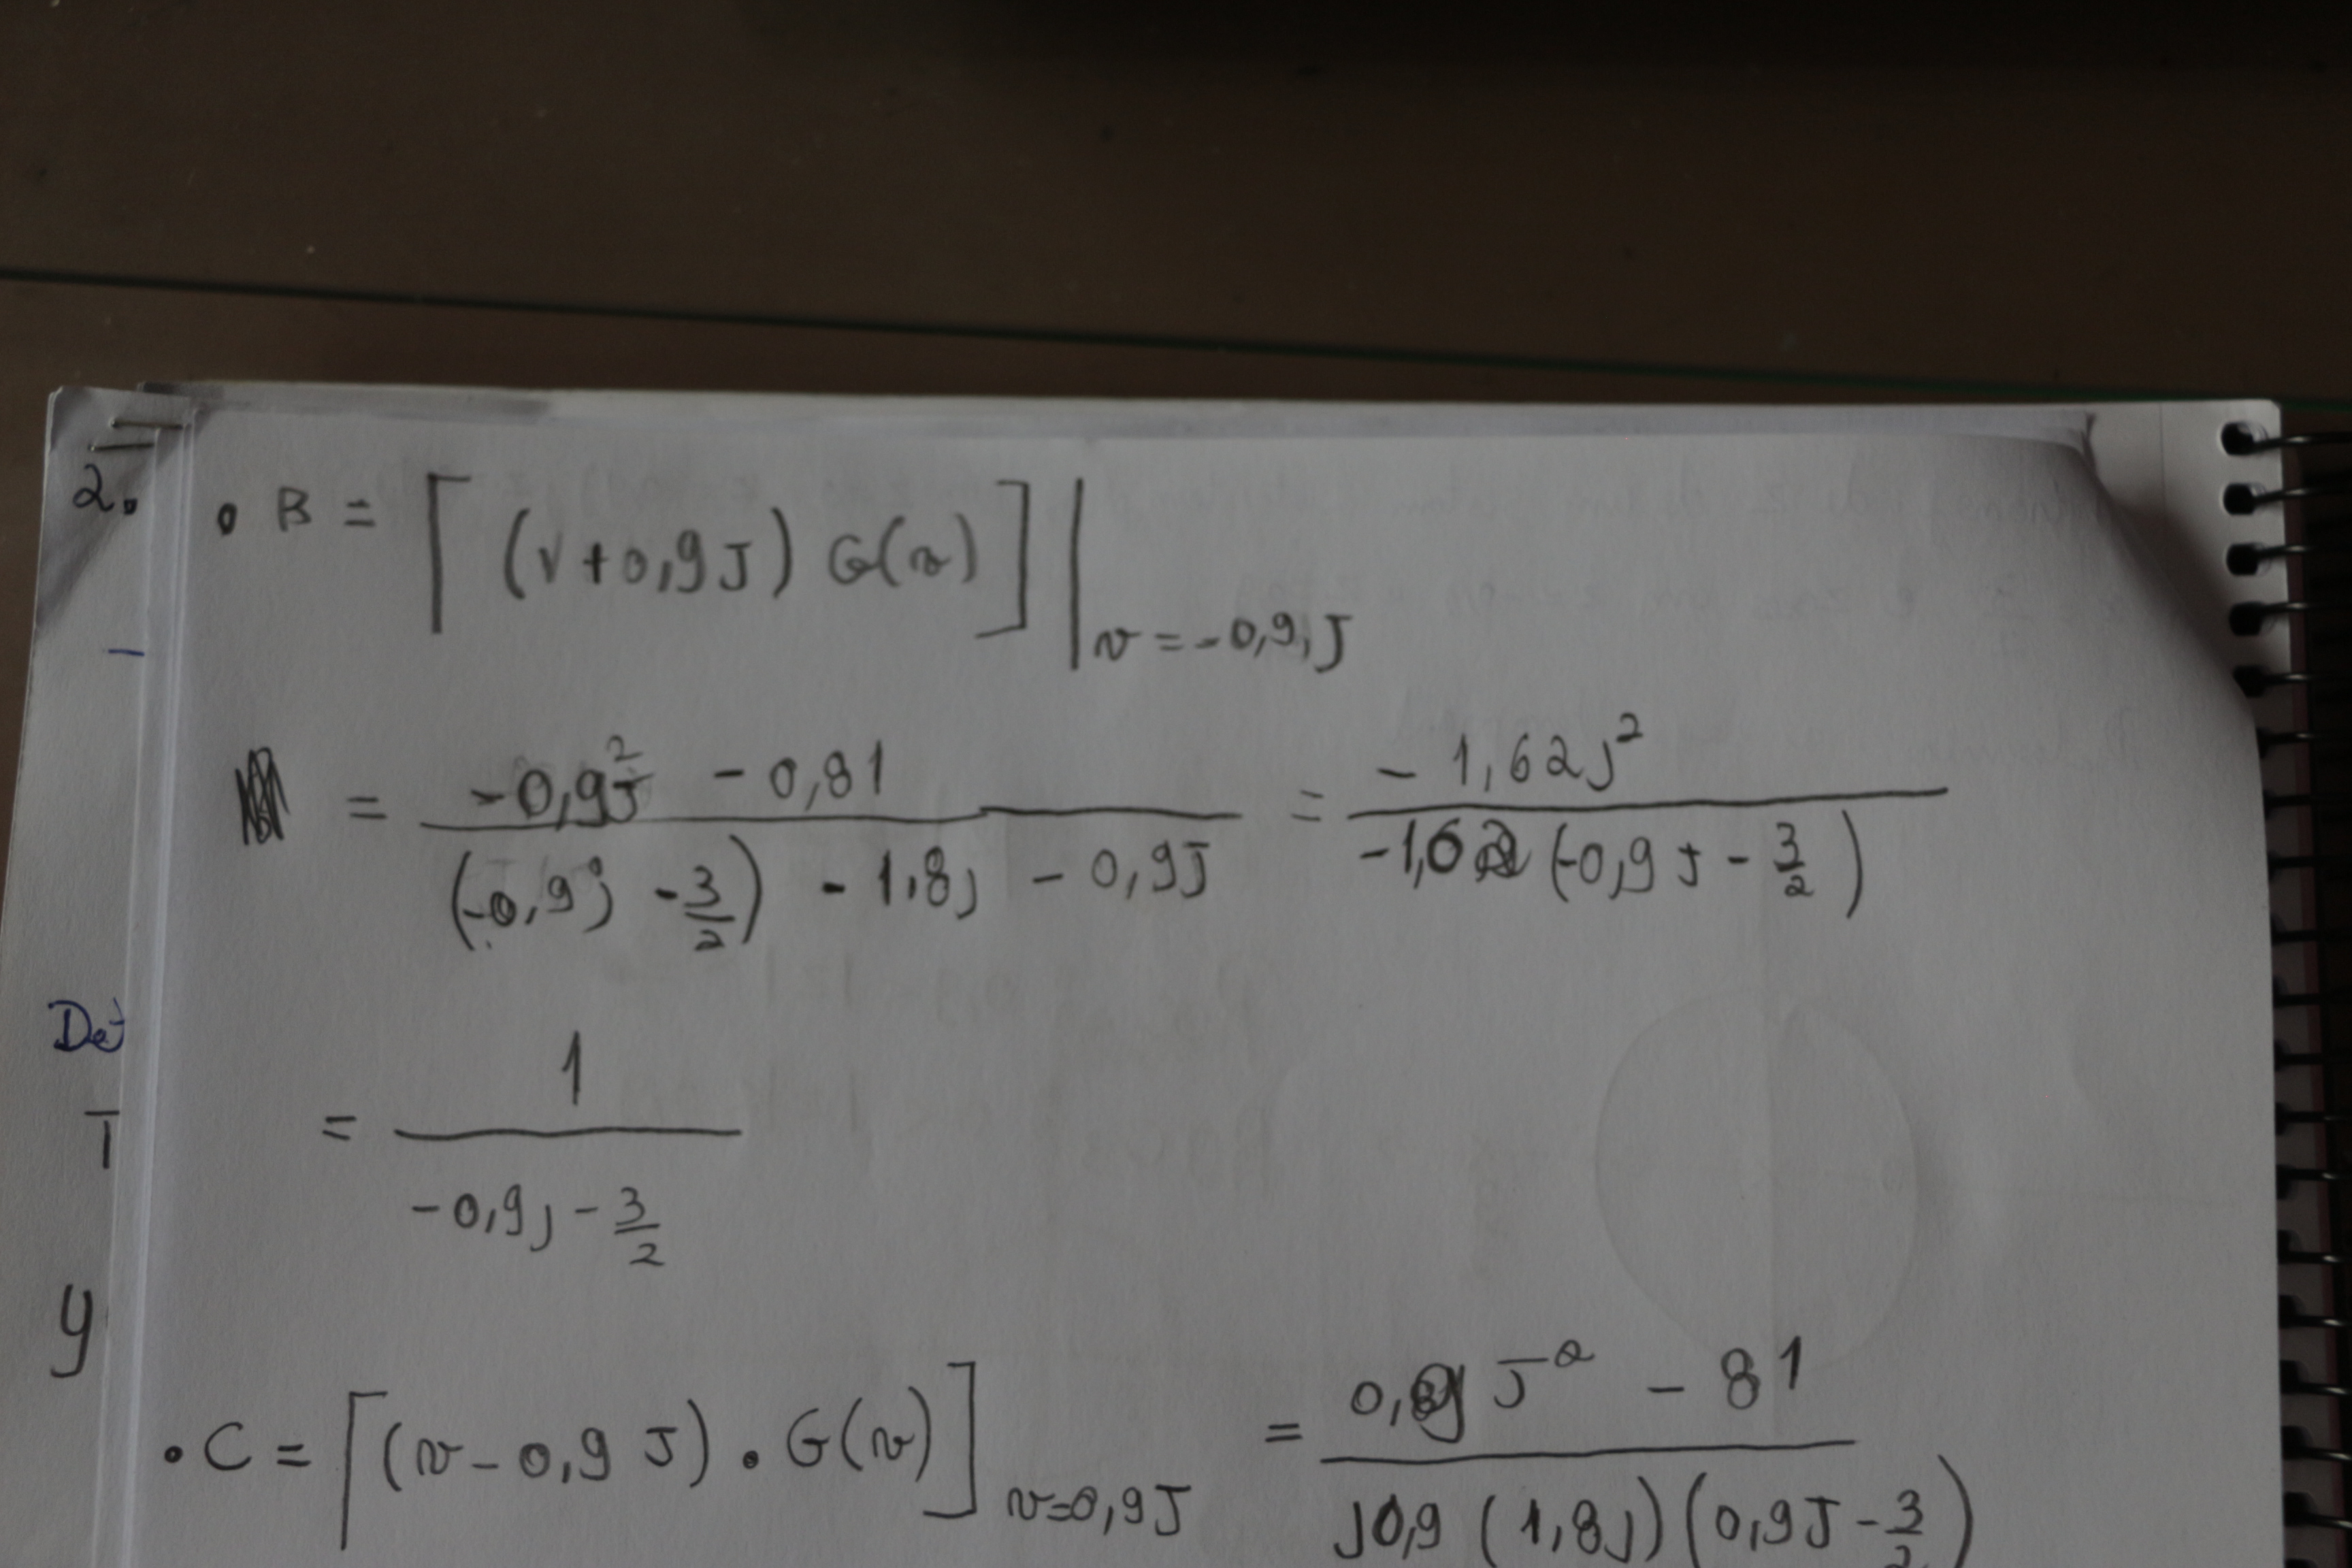 2.
• B = [ (v+0,9J) G(v) ] | v = -0,9J
= (-0,9J² - 0,81) / ((-0,9j - 3/2) - 1,8j - 0,9J) = - 1,62J² / -1,62 (-0,9J - 3/2)
De
= 1 / (-0,9j - 3/2)
T
y
• C = [ (v - 0,9 J) • G(v) ] v=0,9J = (0,9 J² - 81) / (J0,9 (1,8J) (0,9J - 3/2))